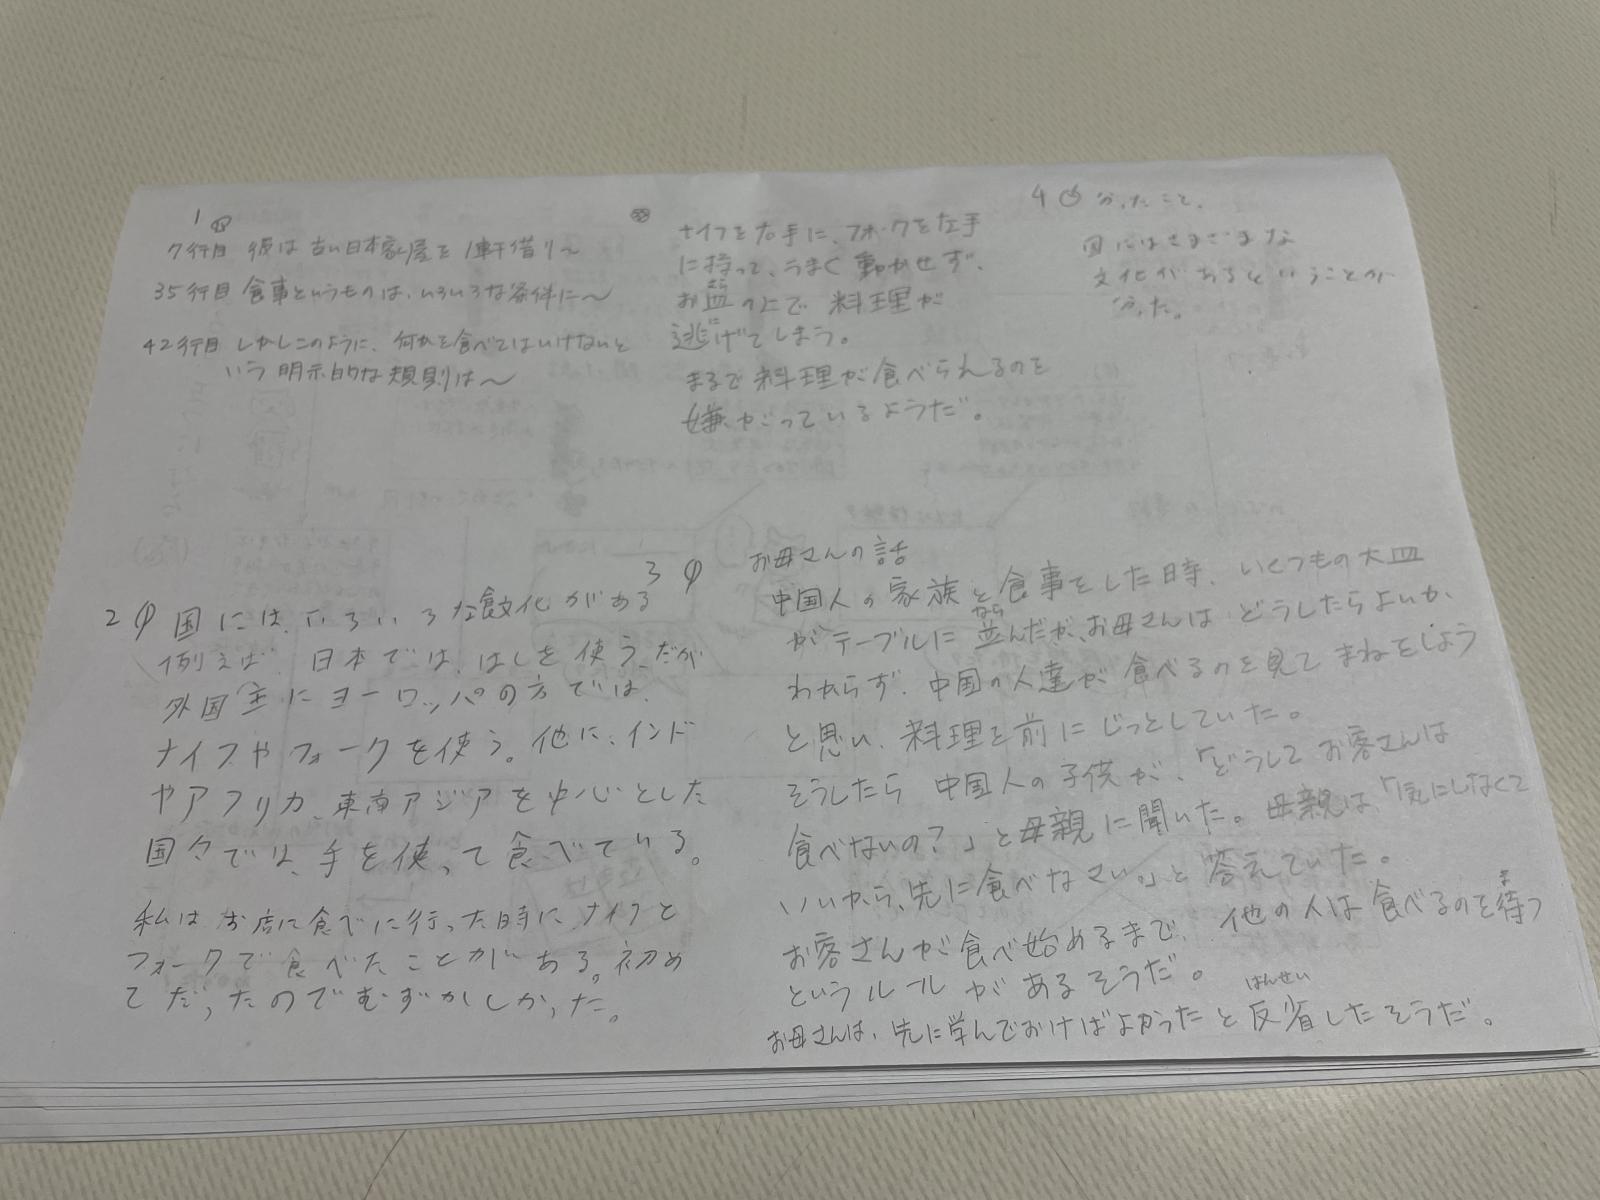 1
7行目 彼は古い日本家屋を1軒借り〜
35行目 食事というものは、いろいろな条件に〜
42行目 しかしこのように、何かを食べてはいけないと
いう明示的な規則は〜
ナイフを右手に、フォークを左手
に持って、うまく動かせず、
お皿の上で料理が
さら
逃げてしまう。
に
まるで料理が食べられるのを
嫌がっているようだ。
4 分かったこと。
国にはさまざまな
文化があるということが
分かった。
2 国には、いろいろな食文化がある
例えば、日本では、はしを使う。だが
外国 主にヨーロッパの方では、
ナイフやフォークを使う。他に、インド
やアフリカ、東南アジアを中心とした
国々では、手を使って食べている。
私はお店に食べに行った時に、ナイフと
フォークで食べたことがある。初め
てだったのでむずかしかった。
3 お母さんの話
中国人の家族と食事をした時、いくつもの大皿
がテーブルに並んだが、お母さんは、どうしたらよいか、
なら
わからず、中国の人達が食べるのを見てまねをしよう
と思い、料理を前にじっとしていた。
そうしたら中国人の子供が、「どうしてお客さんは
食べないの?」と母親に聞いた。母親は「気にしなくて
いいから、先に食べなさい。」と答えていた。
お客さんが食べ始めるまで、他の人は食べるのを待つ
ま
というルールがあるそうだ。
はんせい
お母さんは、先に学んでおけばよかったと反省したそうだ。